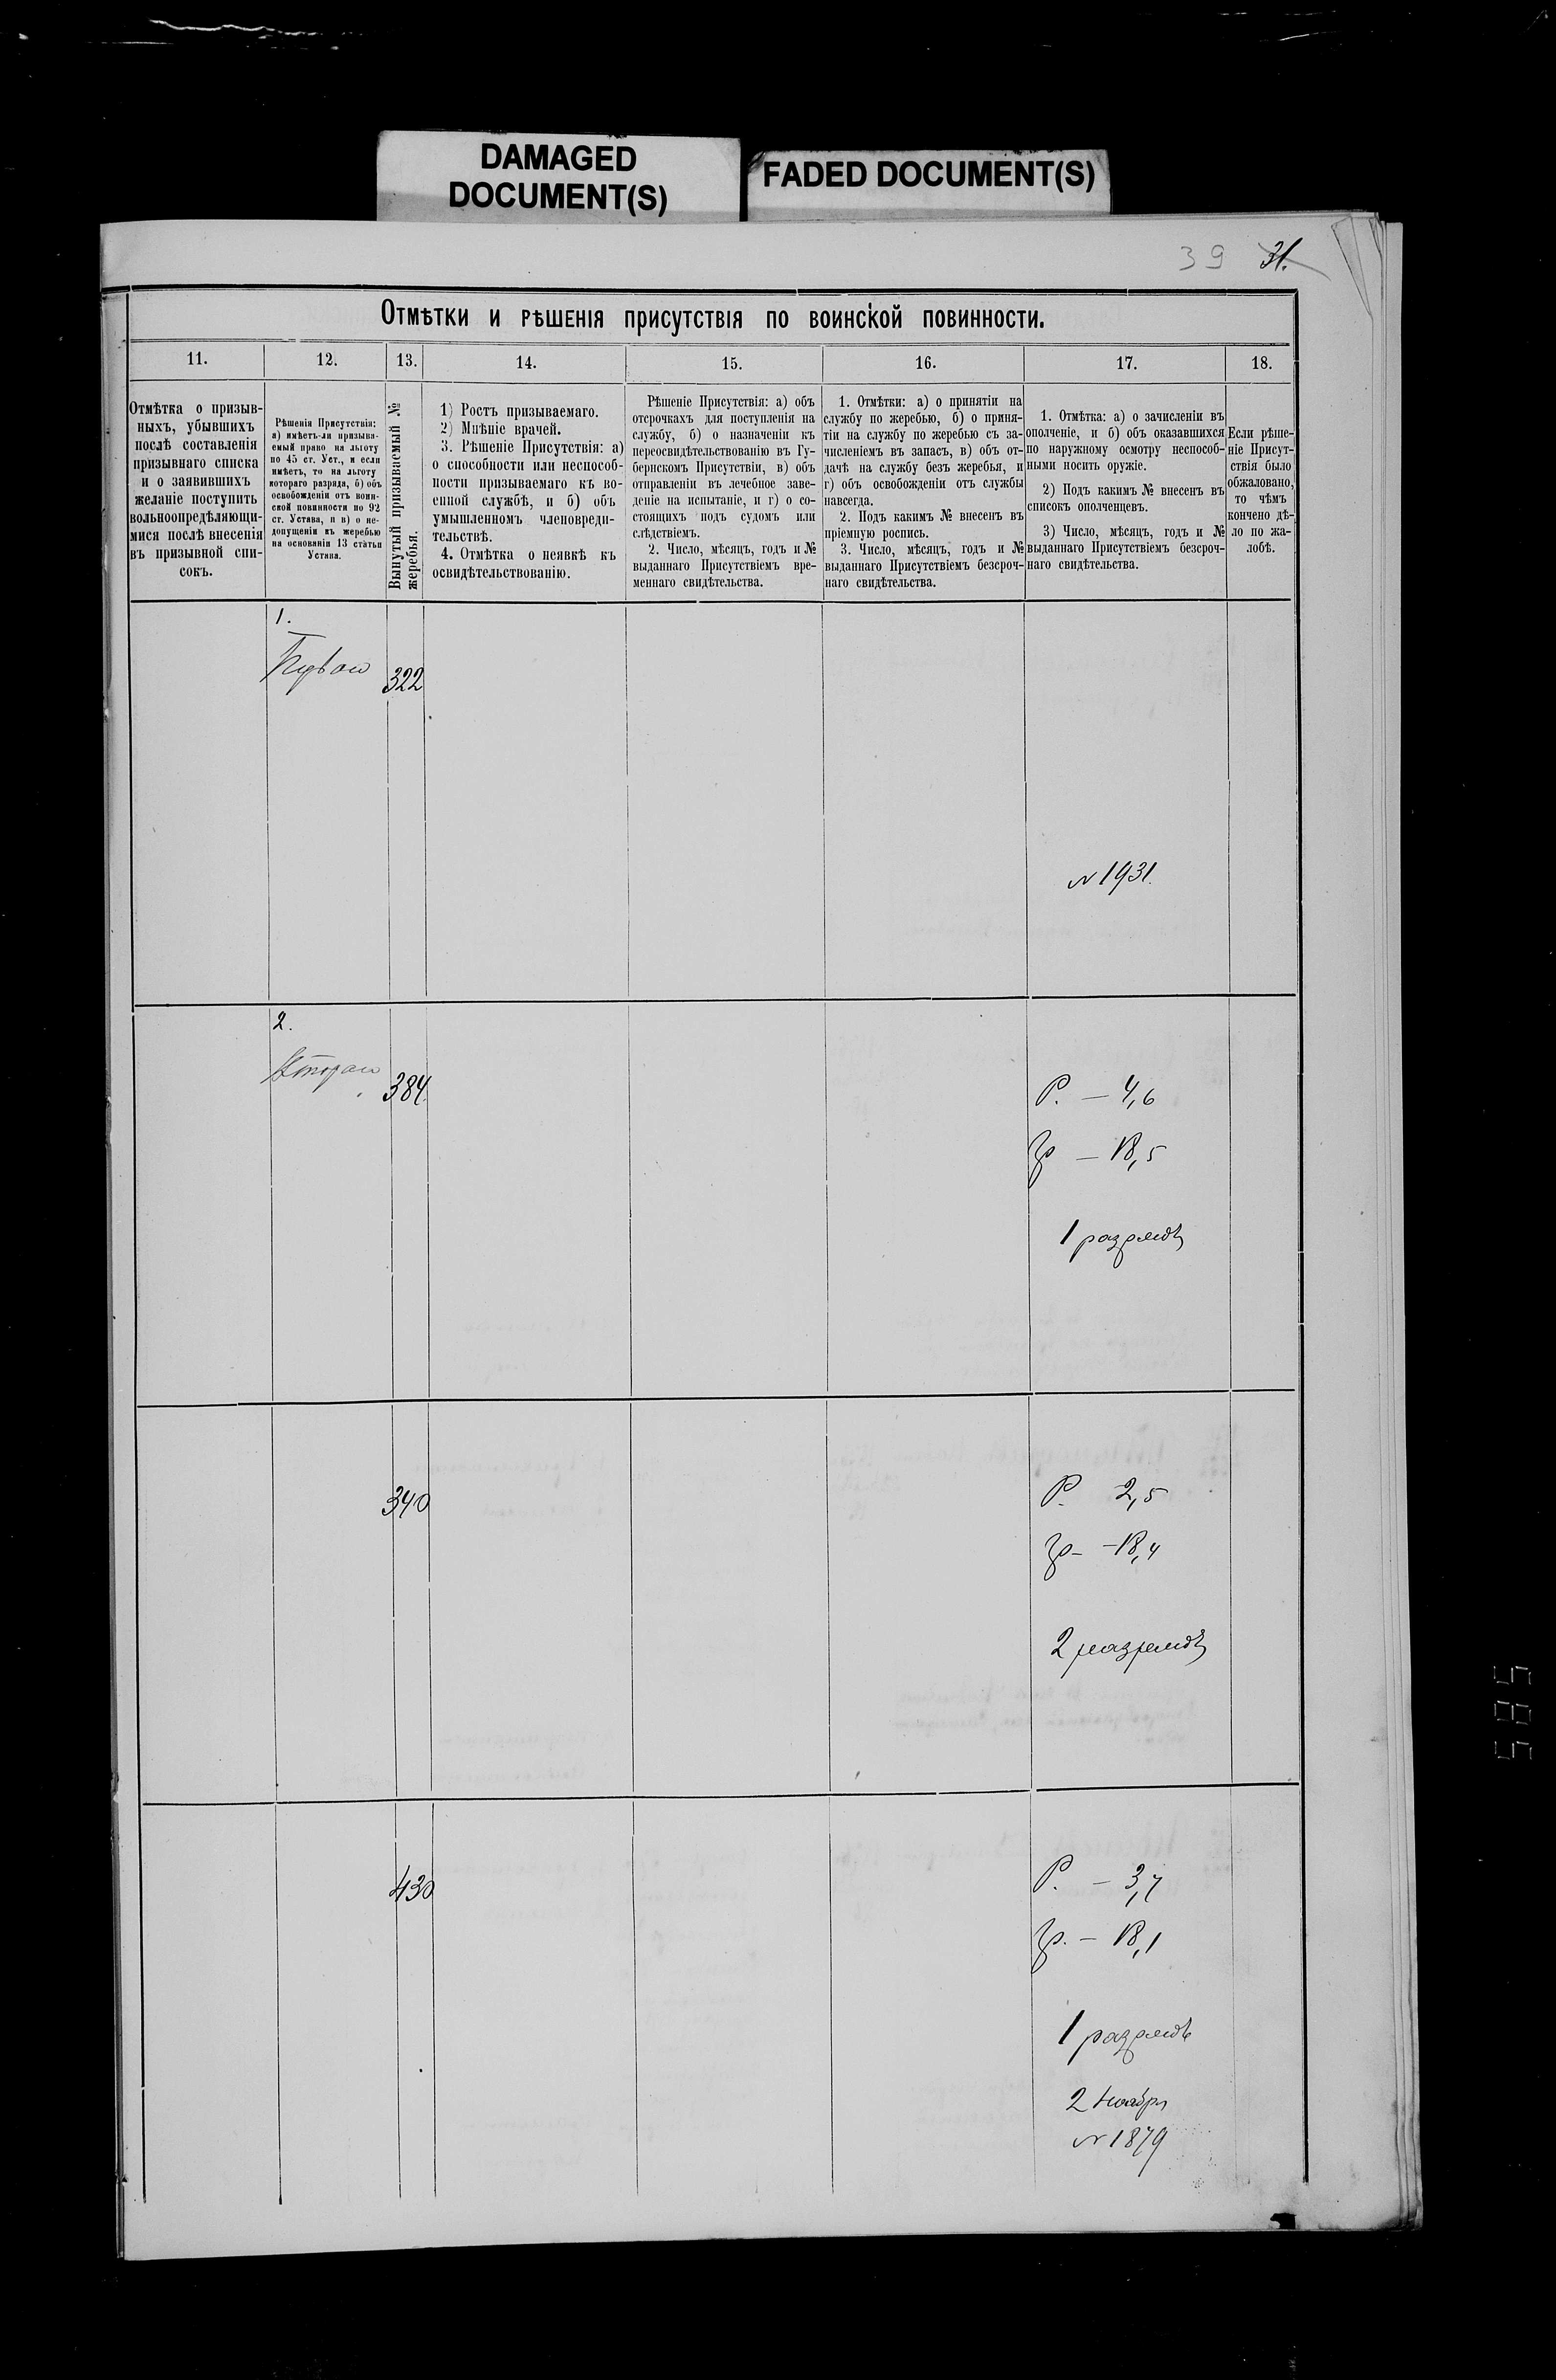 DAMAGED
DOCUMENT(S)
FADED DOCUMENT(S)
39 31.
Отмѣтки и рѣшенія присутствія по воинской повинности.
11.
12.
13.
14.
15.
16.
17.
18.
Отмѣтка о призыв-
ныхъ, убывшихъ
послѣ составленія
призывнаго списка
и о заявившихъ
желаніе поступить
вольноопредѣляющи-
мися послѣ внесенія
въ призывной спи-
сокъ.
Рѣшенія Присутствія:
а) имѣетъ-ли призыва-
емый право на льготу
по 45 ст. Уст., и если
имѣетъ, то на льготу
котораго разряда, б) объ
освобожденіи отъ воин-
ской повинности по 92
ст. Устава, и в) о не-
допущеніи къ жеребью
на основаніи 13 статьи
Устава.
Вынутый призываемый №
жеребья.
1) Ростъ призываемаго.
2) Мнѣніе врачей.
3. Рѣшеніе Присутствія: а)
о способности или неспособ-
ности призываемаго къ во-
енной службѣ, и б) объ
умышленномъ членовреди-
тельствѣ.
4. Отмѣтка о неявкѣ къ
освидѣтельствованію.
Рѣшеніе Присутствія: а) объ
отсрочкахъ для поступленія на
службу, б) о назначеніи къ
переосвидѣтельствованію въ Гу-
бернскомъ Присутствіи, в) объ
отправленіи въ лечебное заве-
деніе на испытаніе, и г) о со-
стоящихъ подъ судомъ или
слѣдствіемъ.
2. Число, мѣсяцъ, годъ и №
выданнаго Присутствіемъ вре-
меннаго свидѣтельства.
1. Отмѣтки: а) о принятіи на
службу по жеребью, б) о приня-
тіи на службу по жеребью съ за-
численіемъ въ запасъ, в) объ от-
дачѣ на службу безъ жеребья, и
г) объ освобожденіи отъ службы
навсегда.
2. Подъ какимъ № внесенъ въ
пріемную роспись.
3. Число, мѣсяцъ, годъ и №
выданнаго Присутствіемъ безсроч-
наго свидѣтельства.
1. Отмѣтка: а) о зачисленіи въ
ополченіе, и б) объ оказавшихся
по наружному осмотру неспособ-
ными носить оружіе.
2) Подъ какимъ № внесенъ въ
списокъ ополченцевъ.
3) Число, мѣсяцъ, годъ и №
выданнаго Присутствіемъ безсроч-
наго свидѣтельства.
Если рѣше-
ніе Присут-
ствія было
обжаловано,
то чѣмъ
кончено дѣ-
ло по жа-
лобѣ.
1.
Первой
322
N 1931.
2.
Второй
384.
Р. — 4,6
гр — 18,5
1 разрядъ
340
Р. 2,5
гр — 18,4
2 разрядъ
430
Р. — 3,7
гр. — 18,1
1 разрядъ
2 Ноября
N 1879
585